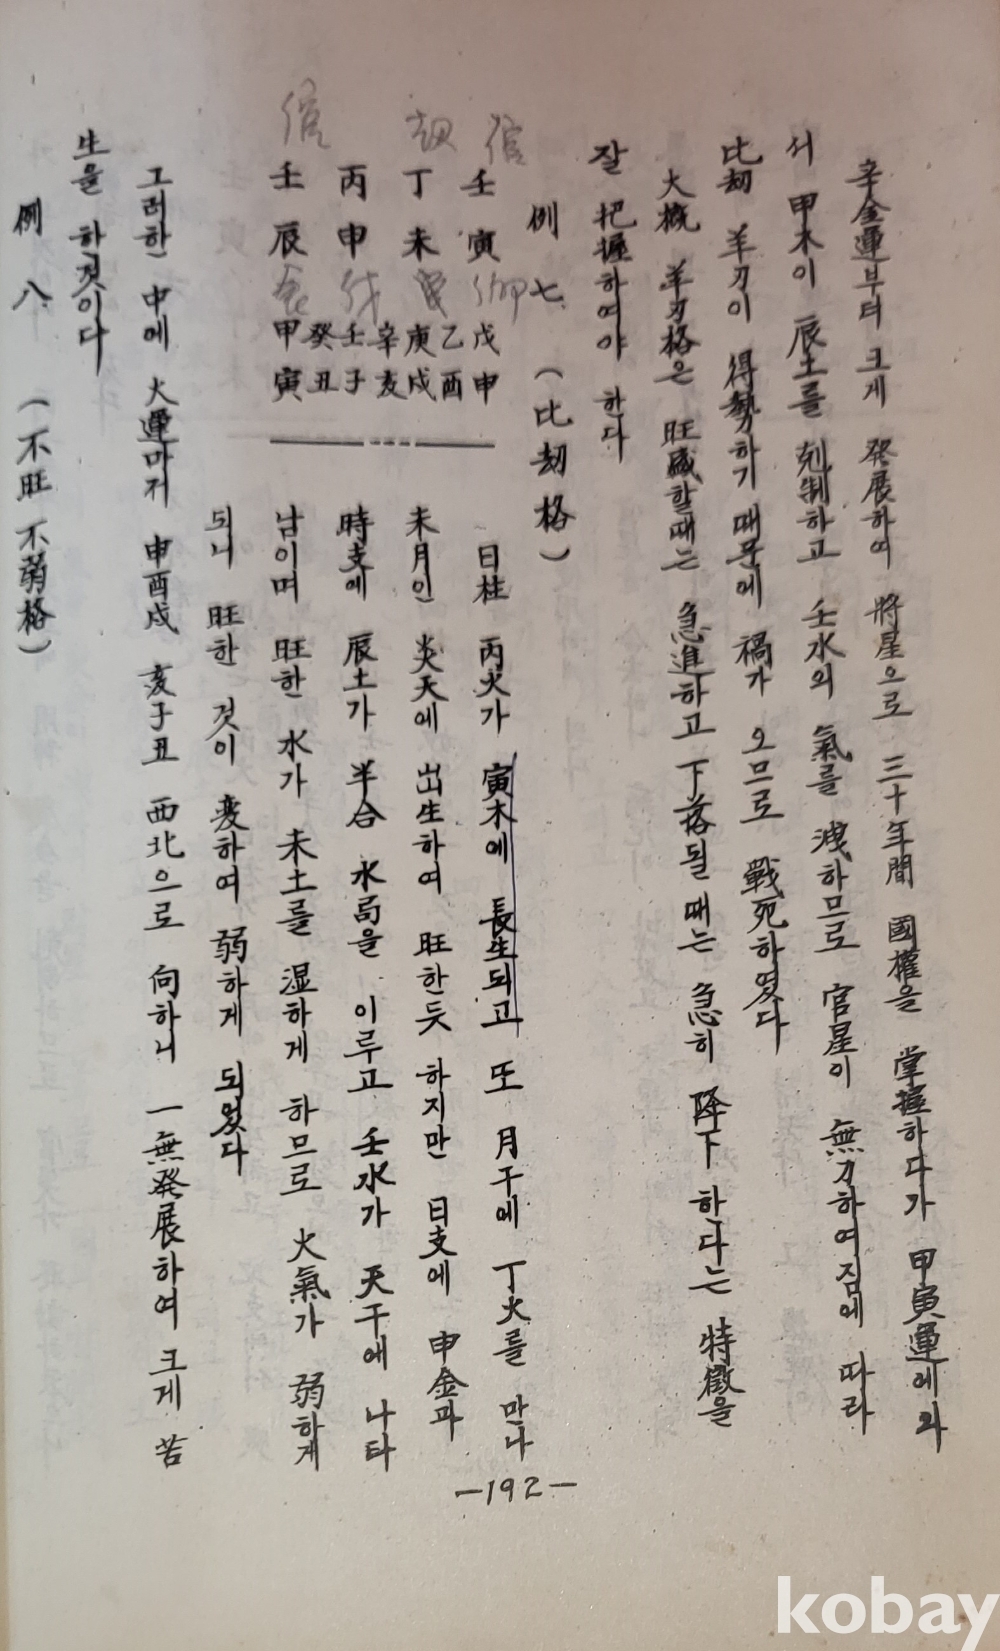 辛金運부터 크게 発展하여 將星으로 三十年間 國權을 掌握하다가 甲寅運에 와
서 甲木이 辰土를 剋制하고 壬水의 氣를 洩하므로 官星이 無力하여짐에 따라
比劫 羊刃이 得勢하기 때문에 禍가 오므로 戰死하였다
大概 羊刃格은 旺盛할때는 急進하고 下落될 때는 急히 降下 한다는 特徵을
잘 把握하여야 한다
例 七. (比劫格)
官 劫 官
壬寅
丁未
丙申
壬辰
戊申
乙酉
庚戌
辛亥
壬子
癸丑
甲寅
日柱 丙火가 寅木에 長生되고 또 月干에 丁火를 만나
未月인 炎天에 出生하여 旺한듯 하지만 日支에 申金과
時支에 辰土가 半合 水局을 이루고 壬水가 天干에 나타
남이며 旺한 水가 未土를 湿하게 하므로 火氣가 弱하게
되니 旺한 것이 変하여 弱하게 되었다
그러한 中에 大運마저 申酉戌 亥子丑 西北으로 向하니 一無発展하여 크게 苦
生을 하것이다
例 八. (不旺不弱格)
-192-
kobay